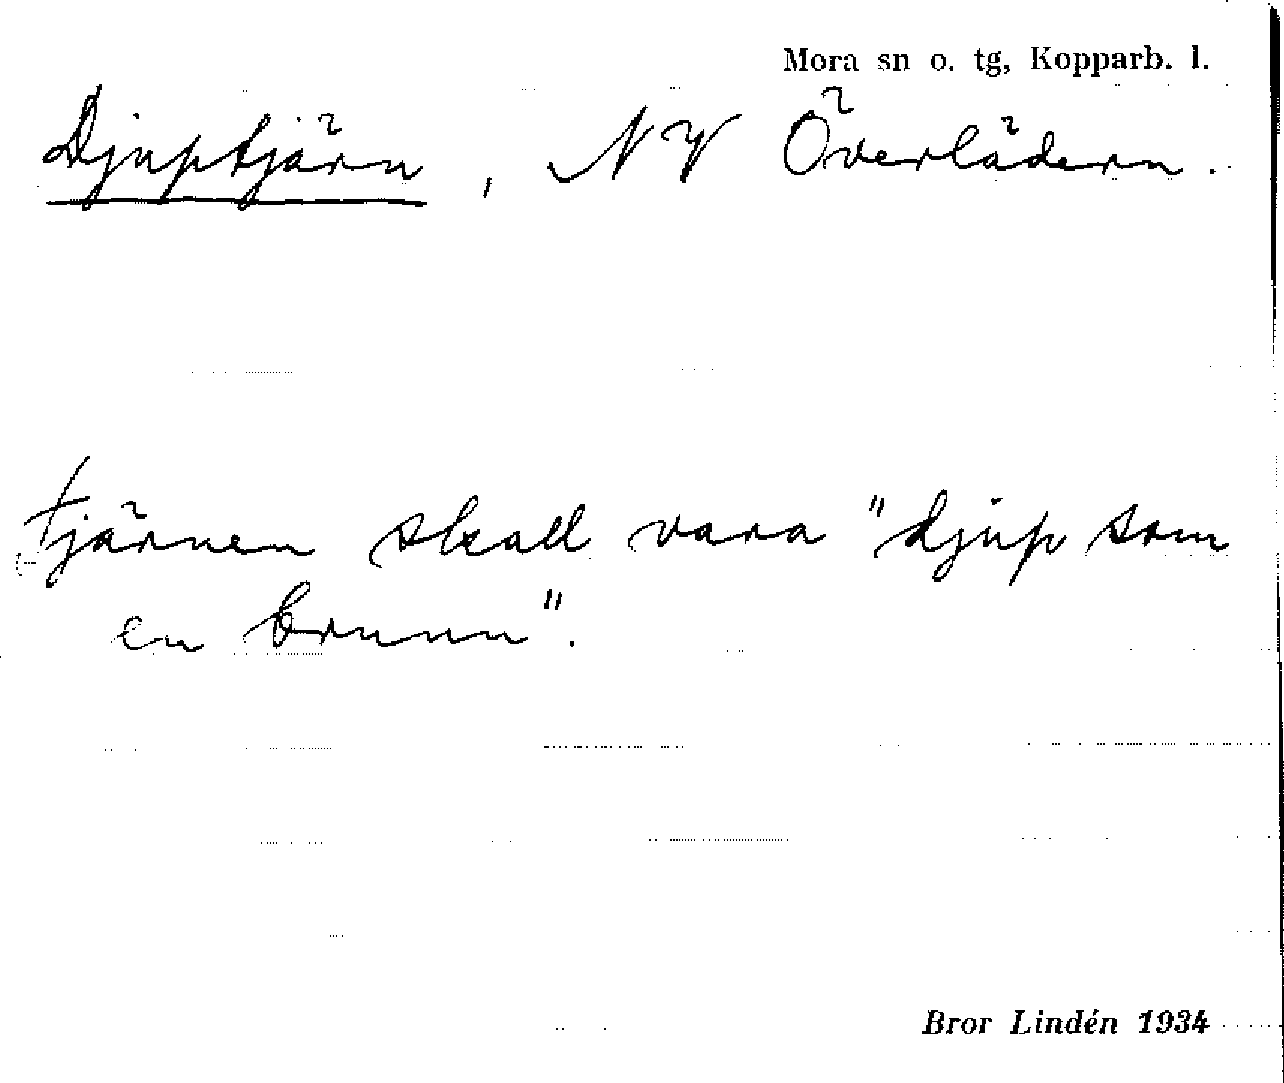 Mora sn o. tg, Kopparb. l.
Djuptjärn, NV Överlädern.
Tjärnen skall vara "djup som
en brunn".
Bror Lindén 1934